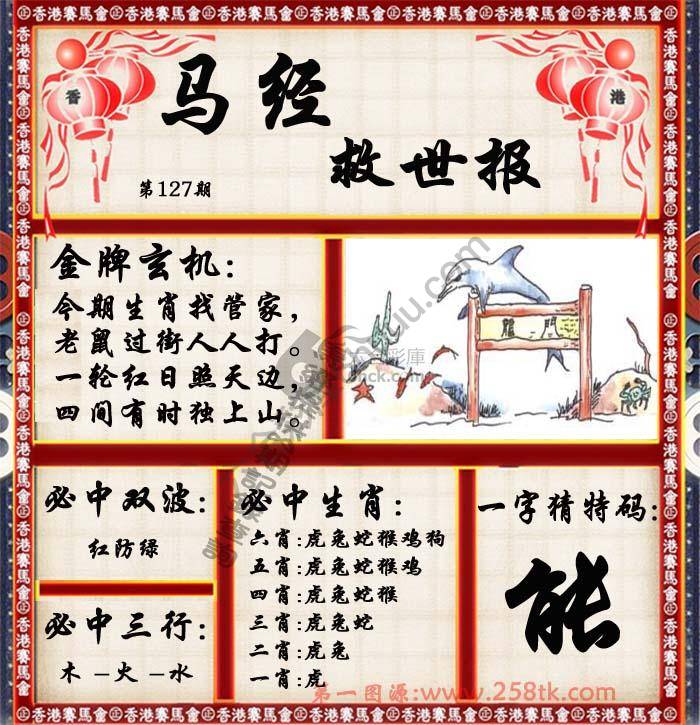 香港
马经
救世报
第127期
金牌玄机:
今期生肖找管家,
老鼠过街人人打。
一轮红日照天边,
四间有时独上山。
龍門
必中双波:
红防绿
必中三行:
木-火-水
必中生肖:
六肖:虎兔蛇猴鸡狗
五肖:虎兔蛇猴鸡
四肖:虎兔蛇猴
三肖:虎兔蛇
二肖:虎兔
一肖:虎
一字猜特码:
能
第一图源:www.258tk.com
香港賽馬會